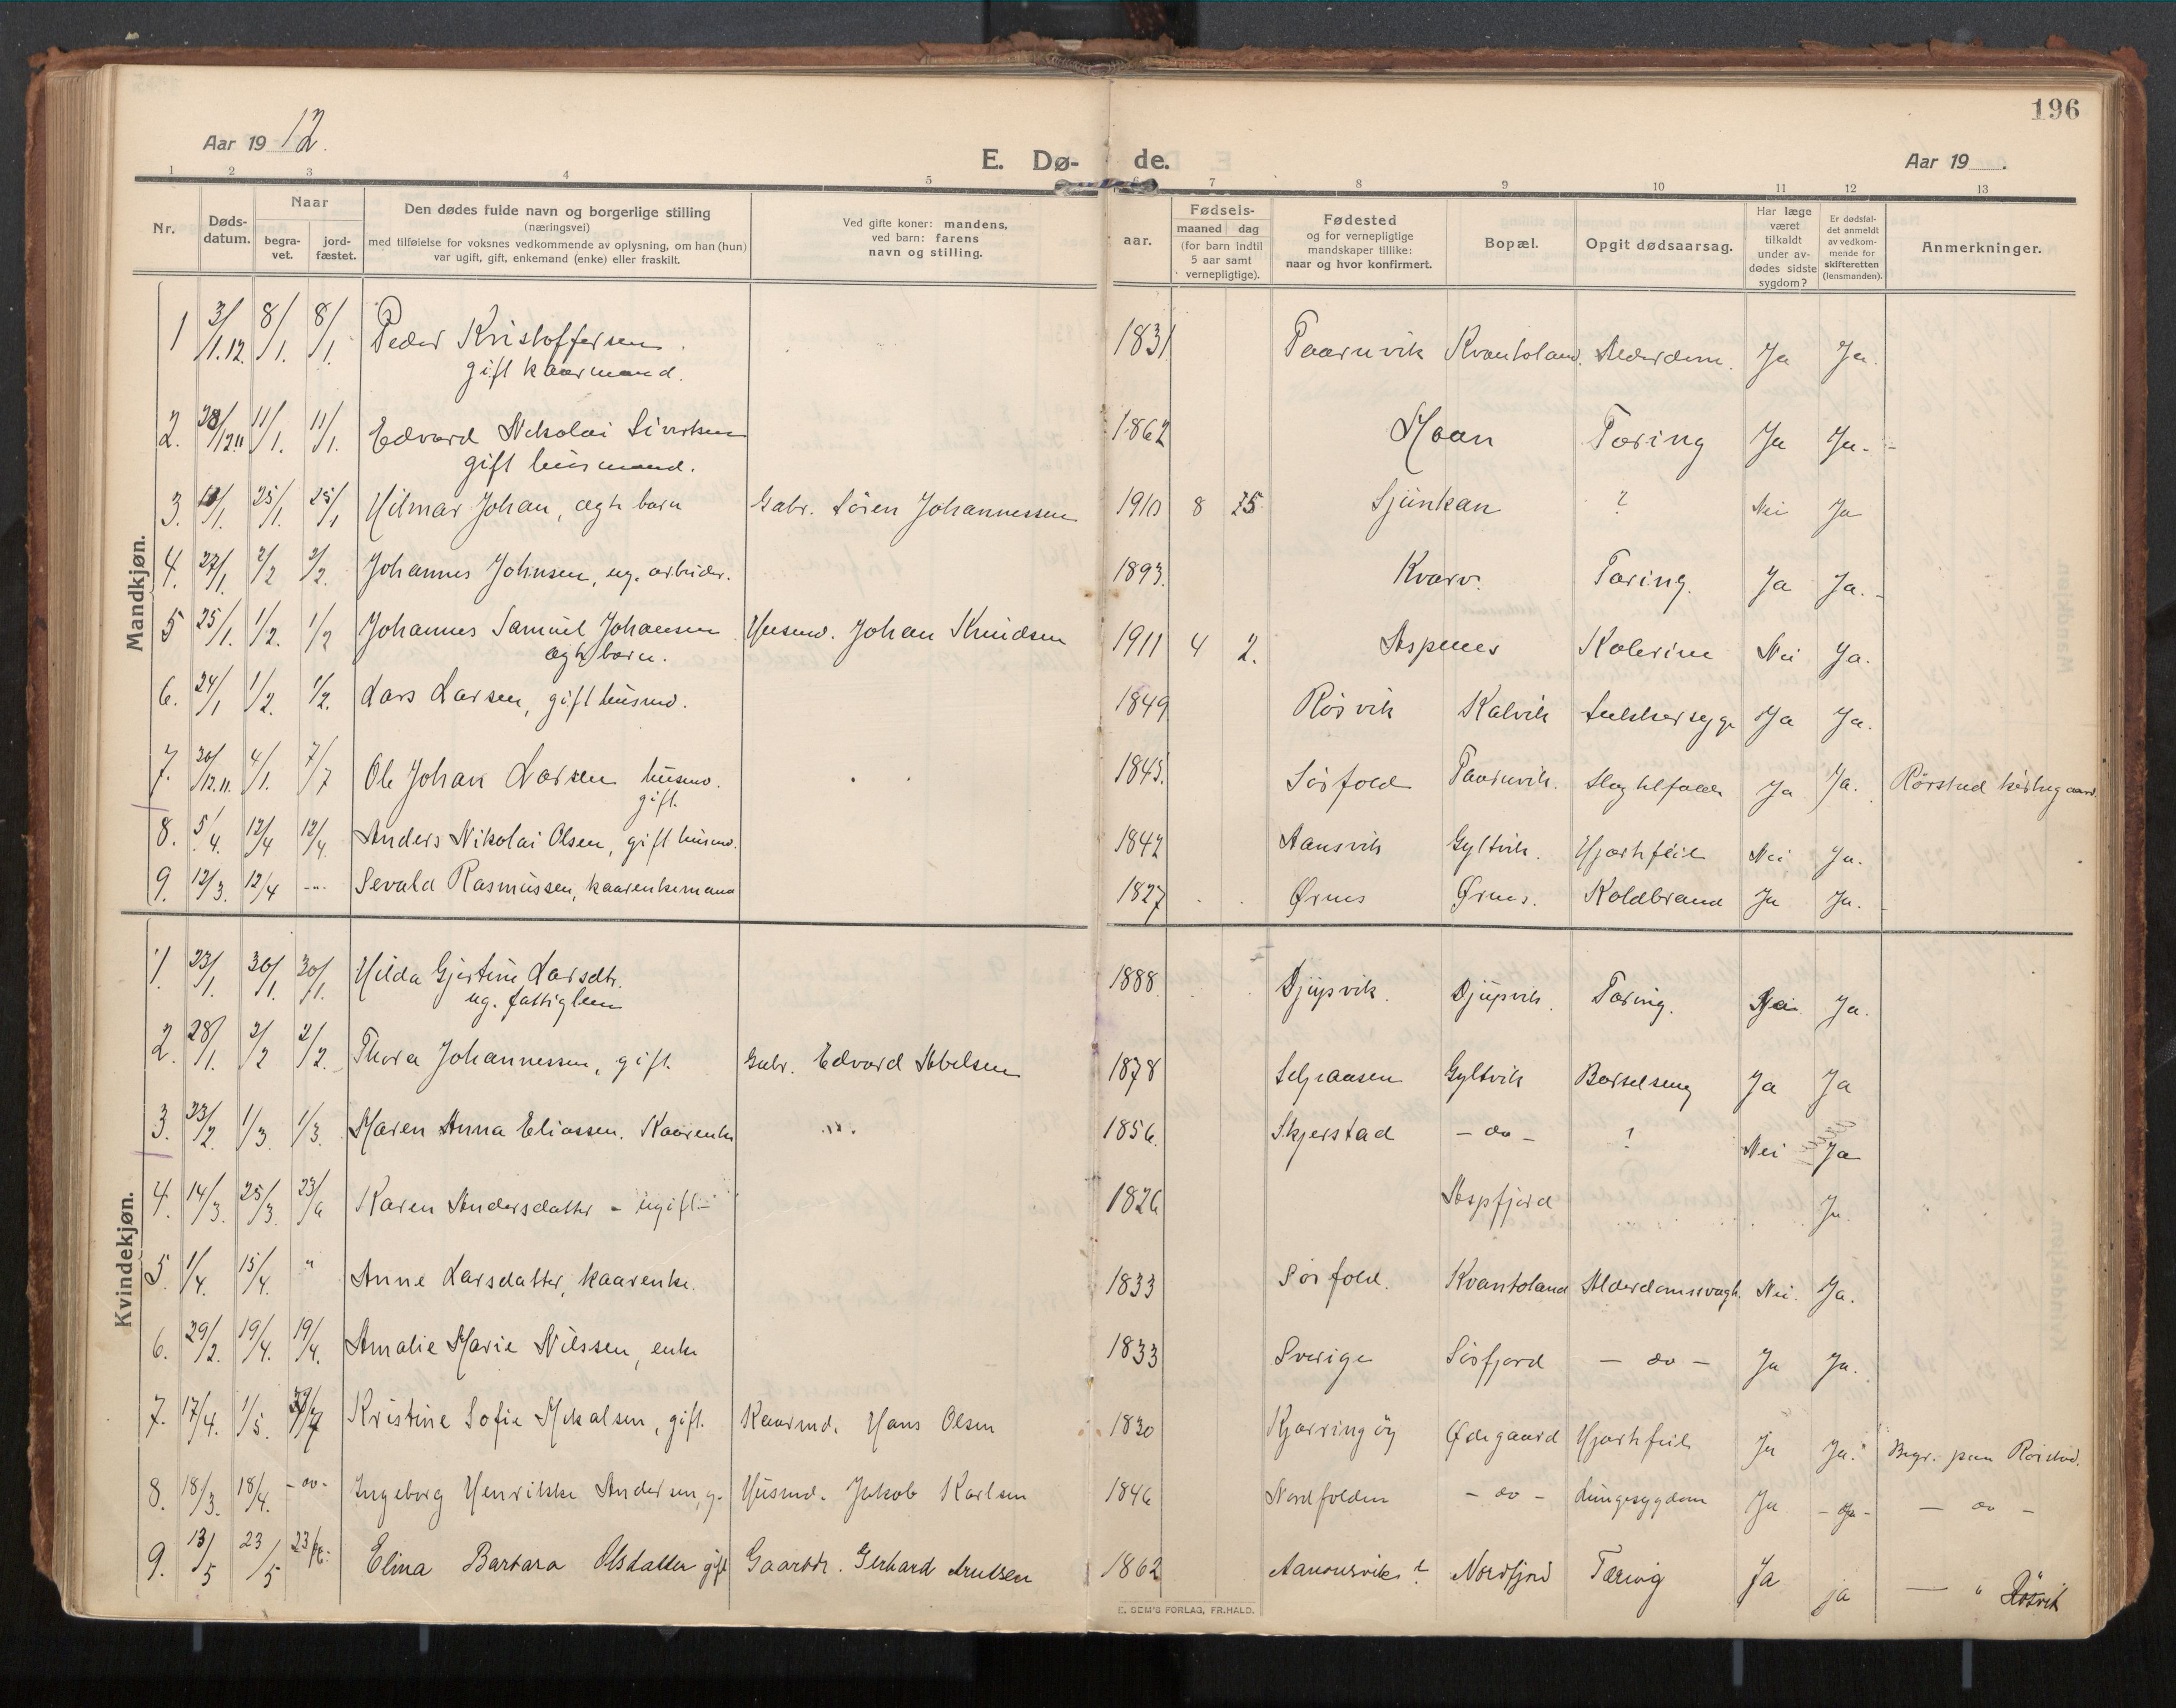 196
Aar 19 12.
E. Dø- de.
Aar 19 .
1 2 3 4 5 6 7 8 9 10 11 12 13
Nr.
Døds-
datum.
Naar
begra-
vet.
jord-
fæstet.
Den dødes fulde navn og borgerlige stilling
(næringsvei)
med tilføielse for voksnes vedkommende av oplysning, om han (hun)
var ugift, gift, enkemand (enke) eller fraskilt.
Ved gifte koner: mandens,
ved barn: farens
navn og stilling.
aar.
Fødsels-
maaned dag
(for barn indtil
5 aar samt
vernepligtige).
Fødested
og for vernepligtige
mandskaper tillike:
naar og hvor konfirmert.
Bopæl.
Opgit dødsaarsag.
Har læge
været
tilkaldt
under av-
dødes sidste
sygdom?
Er dødsfal-
det anmeldt
av vedkom-
mende for
skifteretten
(lensmanden).
Anmerkninger.
Mandkjøn.
1 3/1.12. 8/1. 8/1. Peder Kristoffersen. 1831 Taarnvik Kvantoland. Alderdom. Ja Ja.
gift kaarmand.
2. 28/12 11 11/1. 11/1. Edvard Nikolai Sivertsen 1862 Moan Tæring Ja Ja.
gift husmand.
3. 25/1. 25/1 Hilmar Johan, ægte barn Gabr. Sören Johannessen 1910 8 25 Sjunkan ? Nei Ja
4. 27/1. 2/2 2/2. Johannes Johnsen, ug. arbeider. 1893. Kvarv. Tæring. Ja Ja.
5 25/1. 1/2. 1/2 Johannes Samuel Johansen Husmd. Johan Knudsen 1911 4 2. Aspenes Kolerine Nei Ja.
ægte barn.
6. 24/1 1/2. 1/2. Lars Larsen, gift husmd. 1849 Røsvik Kalvik Sukkersyge Ja Ja.
7. 30/12.11. 4/1. 7/7 Ole Johan Larsen husmd. 1845. Sörfold Taarnvik. Slagtilfælde Ja Ja. Rørstad kirkegaard.
gift.
8. 5/4. 12/4 12/4. Anders Nikolai Olsen, gift husmd. 1842 Aansvik Gyltvik. Hjertefeil Nei Ja.
9. 12/3. 12/4 -"- Sevald Rasmussen, kaarenkemand 1827 Ørnes Ørnes. Koldbrand Ja Ja.
Kvindekjøn.
1. 23/1. 30/1. 30/1. Hilda Gjertine Larsdtr. 1888. Djupvik. Djupvik. Tæring. Nei Ja.
ug. fattiglem
2. 28/1. 2/2 2/2. Thora Johannessen, gift. Gabr. Edvard Abelsen 1878 Seljeaasen Gyltvik Barselseng Ja Ja
3. 23/2. 1/3 1/3. Maren Anna Eliassen. Kaarenke -"- 1856. Skjerstad - do - ? Nei Ja
4. 14/3. 25/3. 23/6 Karen Andersdatter - ugift - 1826 Aspfjord Ja.
5. 1/4. 15/4. " Anne Larsdatter, kaarenke. 1833 Sörfold. Kvantoland Alderdomssvagh. Nei. Ja.
6. 29/2. 19/4. 19/4. Amalie Marie Nilssen, enke 1833 Sverige Sörfjord - do - Ja Ja.
7. 17/4. 1/5. Kristine Sofie Mikalsen, gift. Kaarmd. Hans Olsen 1830 Kjærringöy Ødegaard Hjertefeil Ja Ja. Begr. paa Rørstad.
8. 18/3. 18/4. - do - Ingeborg Henrikke Andersen, g. Husmd. Jakob Karlsen 1846 Nordfolden - do - Lungesygdom Ja - Ja - - do -
9. 13/5 23/5 Elina Barbara Olsdatter gift Gaardbr. Gerhard Arntsen 1862 Nordfjord Tæring Ja ja - " Røsvik
E. SEM'S FORLAG, FR.HALD.